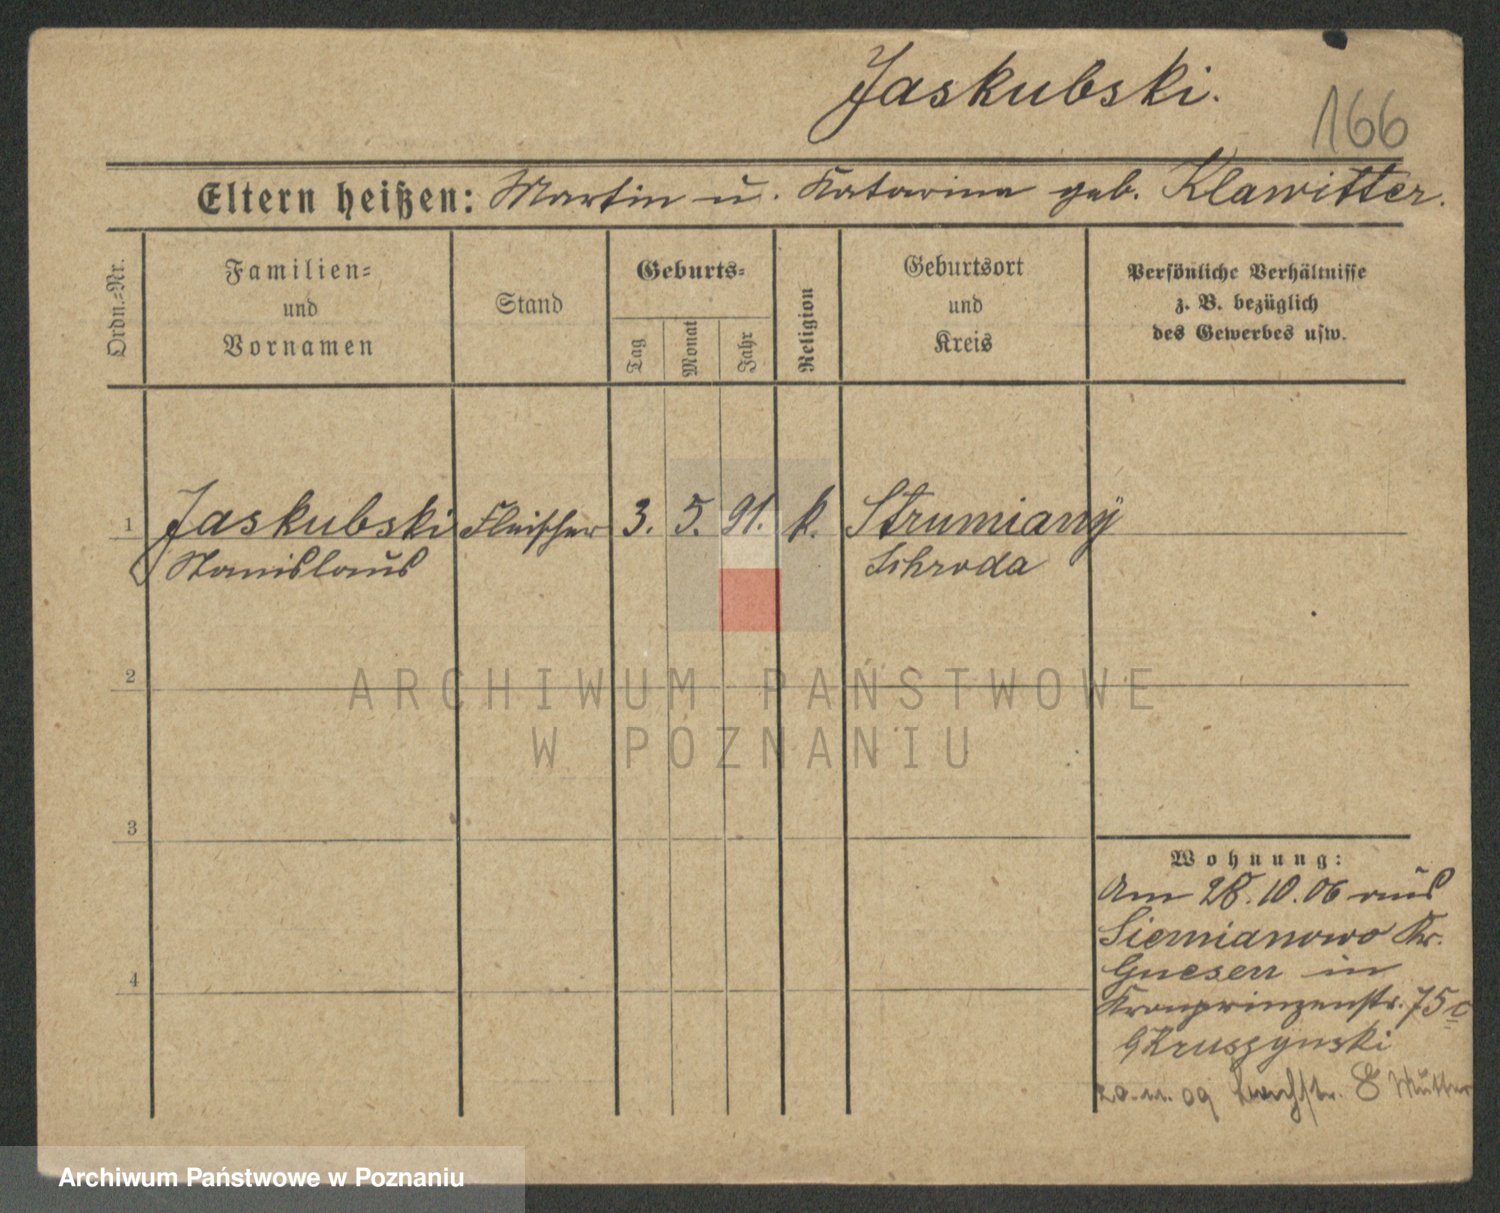 Jaskubski.
166
Eltern heißen: Martin u. Katarina geb. Klawitter.
Ordn.-Nr.
Familien-
und
Vornamen
Stand
Geburts-
Tag
Monat
Jahr
Religion
Geburtsort
und
Kreis
Persönliche Verhältnisse
z. B. bezüglich
des Gewerbes usw.
1 Jaskubski Fleischer 3. 5. 91. k. Strumiany
Stanislaus Schroda
2
ARCHIWUM PAŃSTWOWE
W POZNANIU
3
Wohnung:
Am 28.10.06 aus
Siernianowo Kr.
Gnesen in
Kronprinzenstr. 75c
Kruszynski
4
20.11.09 8 Mutter
Archiwum Państwowe w Poznaniu